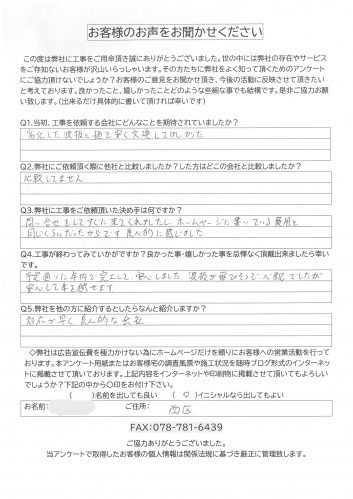 お客様のお声をお聞かせください
この度は弊社に工事をご用命頂き誠にありがとうございました。世の中には弊社の存在やサービス
をご存知ないお客様が沢山いらっしゃいます。その方たちに弊社をよく知って頂くためのアンケート
にご協力頂けないでしょうか？お客様のご意見をお聞かせ頂き、今後の活動に反映させて頂きたい
と考えております。良かったこと、嬉しかったことどのような些細な事でも結構です。是非ご協力お願
い致します。（出来るだけ具体的に書いて頂ければ幸いです）
Q1.当初、工事を依頼する会社にどんなことを期待されていましたか？
劣化した波板と樋を早く交換してほしかった
Q2.弊社にご依頼頂く際に他社と比較しましたか？した方はどこの会社と比較しましたか？
比較してません
Q3.弊社に工事をご依頼頂いた決め手は何ですか？
問い合せをしてすぐに来てくれましたし、ホームページに書いている費用と
同じくらいだったからです 良心的に感じました
Q4.工事が終わってみていかがですか？良かった事・嬉しかった事を忌憚なく頂戴出来ましたら幸い
です。
予定通りに年内で完工して安心しました 波板が飛びそうで心配でしたが
安心して年を越せます
Q5.弊社を他の方に紹介するとしたらなんと紹介しますか？
対応が早く良心的な会社
◇弊社は広告宣伝費を極力かけない為にホームページだけを頼りにお客様への営業活動を行って
おります。本アンケート用紙またはお客様宅の調査風景や施工状況を随時ブログ形式のインターネッ
トに掲載させて頂いております。上記内容をインターネットや印刷物に掲載させて頂いてもよろしい
でしょうか？下記の中から〇印をお付け下さい。
（　）名前を出しても良い （〇）イニシャルなら出してもよい
お名前： ご住所： 西区
FAX:078-781-6439
ご協力ありがとうございました。
当アンケートで取得したお客様の個人情報は関係法規に基づき厳正に管理致します。